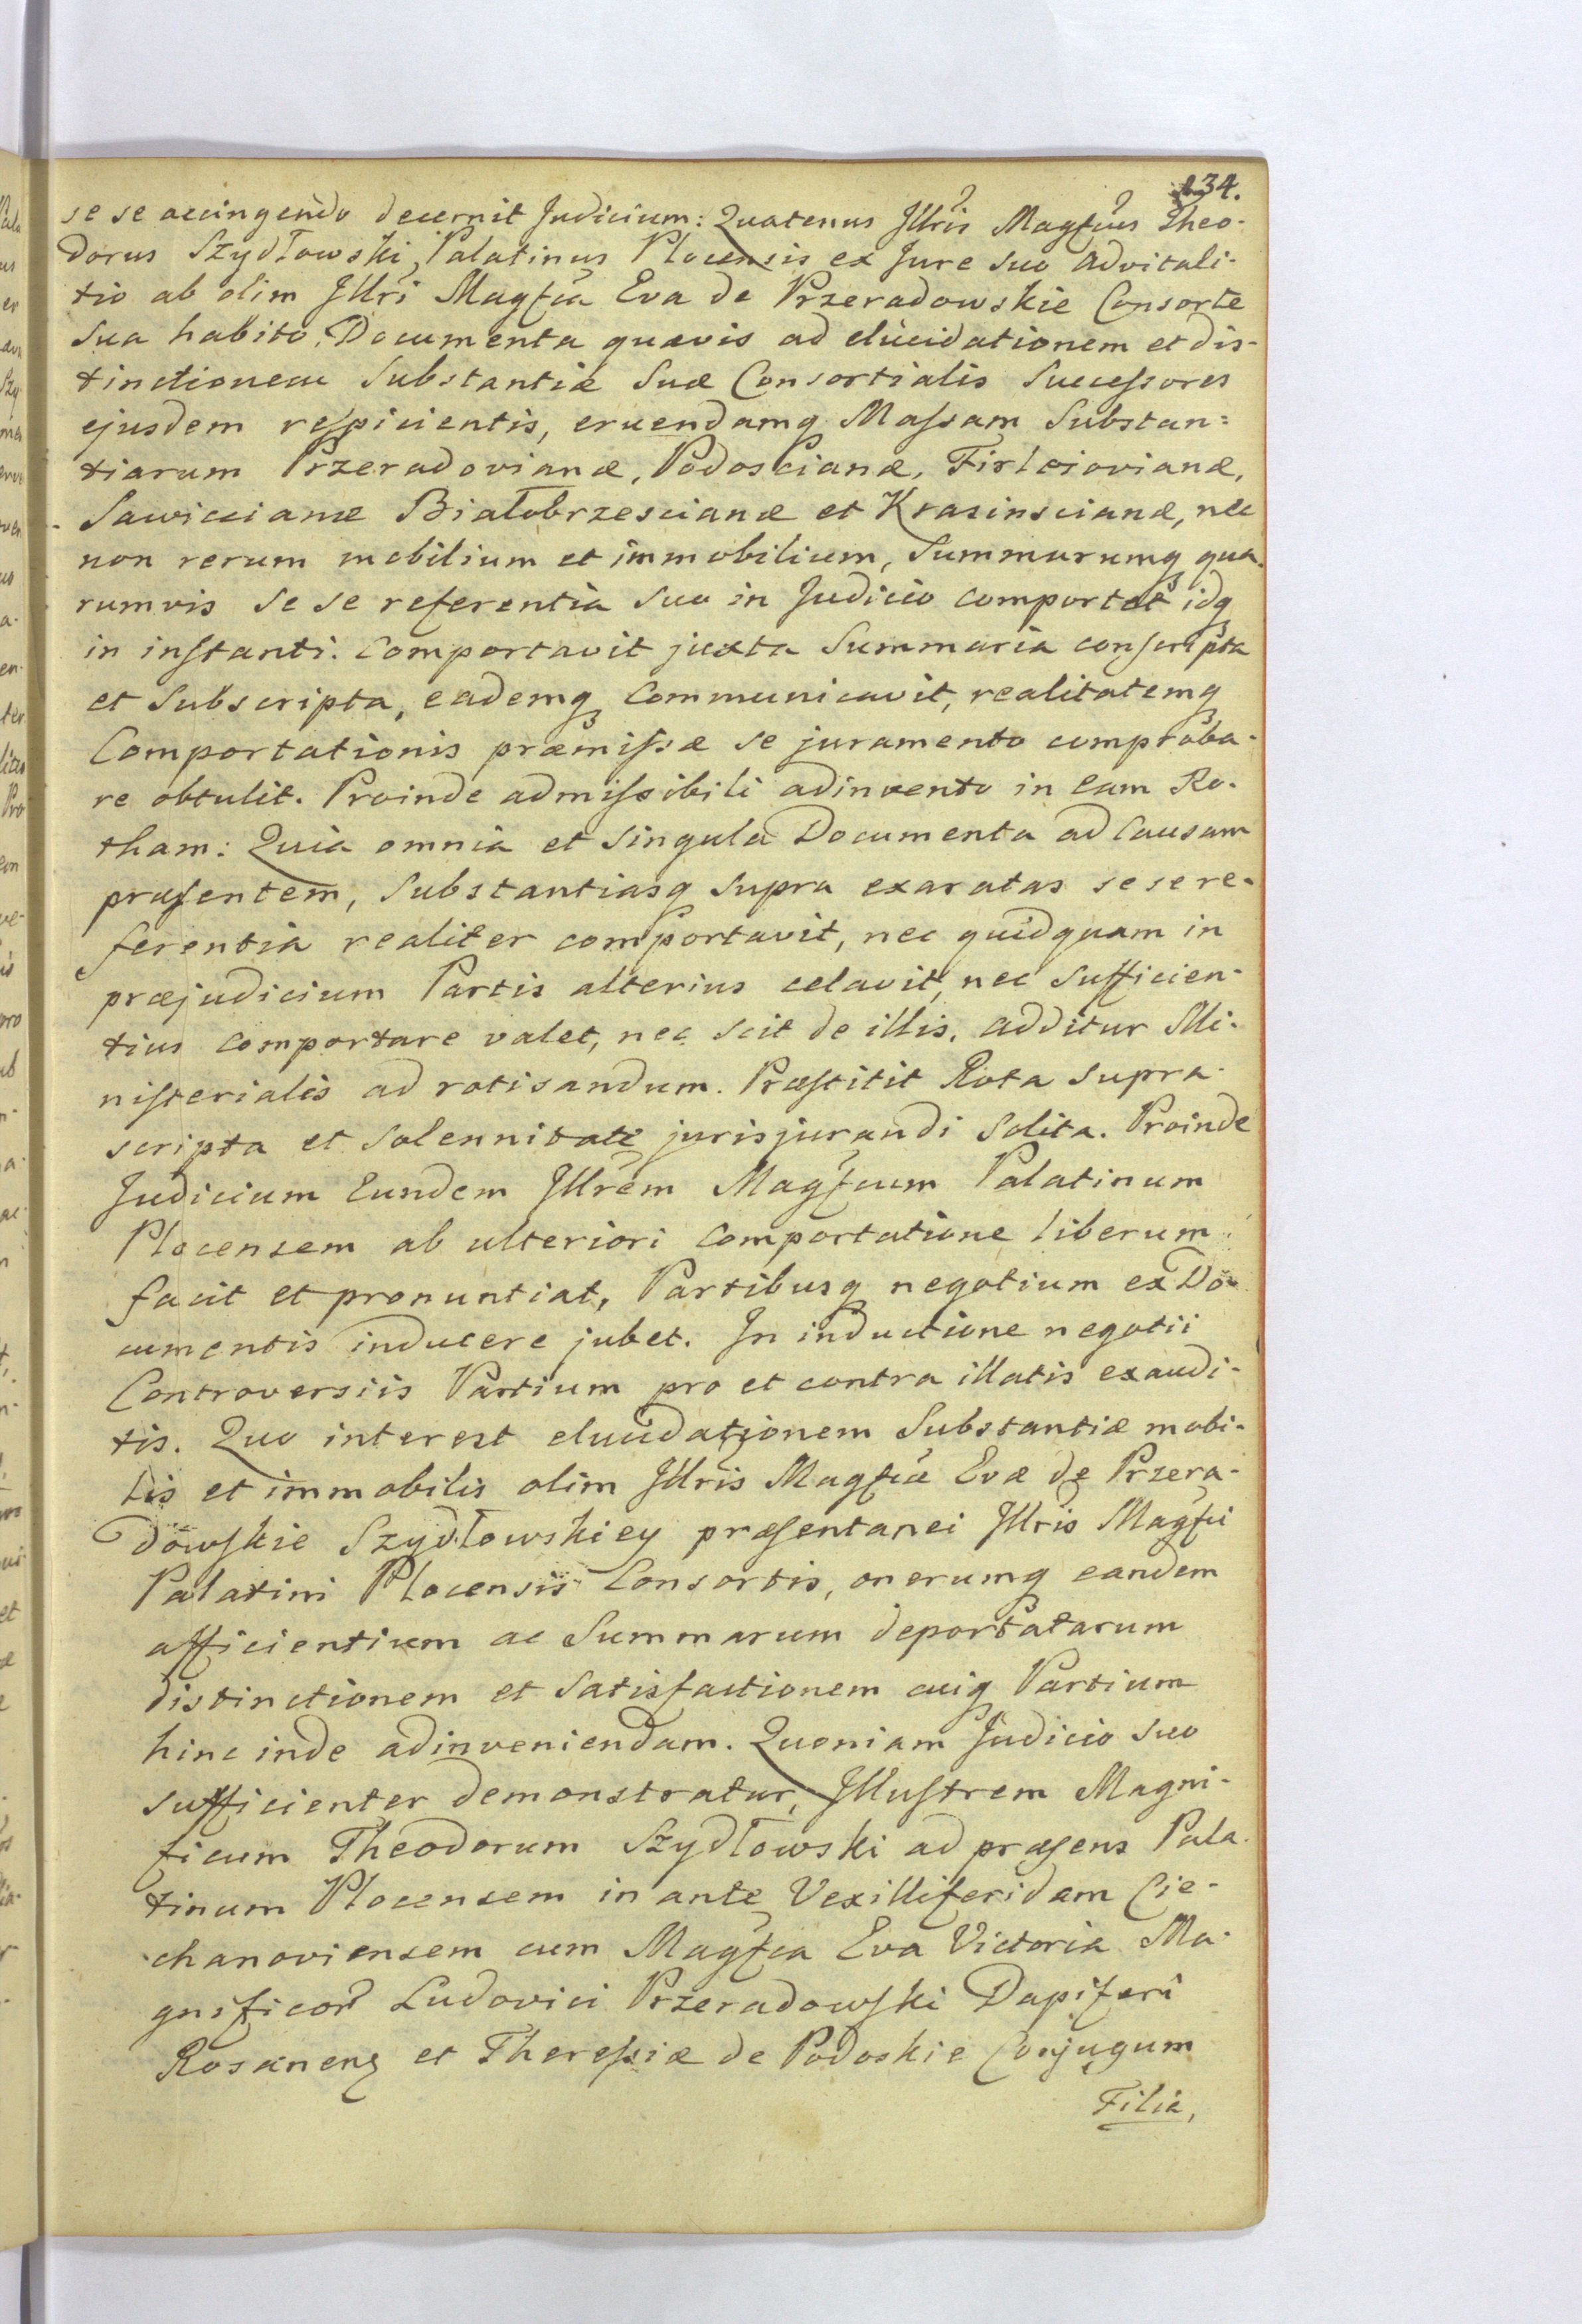 134.
se se accingendo decernit Judicium: Quatenus Jllris Magfcus Theo-
dorus Szydłowski, Palatinus Plocensis ex Jure suo advitali-
tio ab olim Jllri Magfca Eva de Przeradowskie Consorte
sua habito, Documenta quævis ad elucidationem et dis-
tinctionem Substantiæ Suæ Consortialis Successores
ejusdem respicientis, eruendamq Massam Substan=
tiarum Przeradovianæ, Podoscianæ, Firleiovianæ,
Sawiccianæ Białobrzescianæ et Krasinscianæ, nec
non rerum mobilium et immobilium, Summarumq qua-
rumvis se se referentia suo in Judicio comportet idq
in instanti. Comportavit juxta Summaria conscripta
et subscripta, eademq communicavit, realitatemq
Comportationis præmissæ se juramento comproba-
re obtulit. Proinde admissibili adinvento in eam Ro-
tham: Quia omnia et singula Documenta ad causam
præsentem, Substantiasq supra exaratas se se re-
ferentia realiter comportavit, nec quidquam in
præjudicium Partis alterius celavit, nec sufficien-
tius comportare valet, nec scit de illis, additur Mi-
nisterialis ad rotisandum. Præstitit Rota supra-
scripta et solennitate jurisjurandi solita. Proinde
Judicium Eundem Jllrem Magfcum Palatinum
Plocensem ab ulteriori comportatione liberum
facit et pronuntiat, Partibusq negotium ex Do-
cumentis inducere jubet. In inductione negotii
Controversiis Partium pro et contra illatis exaudi-
tis. Quo interest elucidationem Substantiæ mobi-
lis et immobilis olim Jllris Magfcæ Evæ de Przera-
dowskie Szydłowskiey præsentanei Jllris Magfci
Palatini Plocensis Consortis, onerumq eandem
afficientium ac Summarum deportatarum
distinctionem et satisfactionem cuiq Partium
hinc inde adinveniendam. Quoniam Judicio suo
sufficienter demonstratur, Jllustrem Magni-
ficum Theodorum Szydłowski ad præsens Pala-
tinum Plocensem in ante Vexilliferidam Cie-
chanoviensem cum Magfca Eva Victoria Ma-
gnificor Ludovici Przeradowski Dapiferi
Rosanens et Theresiæ de Podoskie Conjugum
Filia,